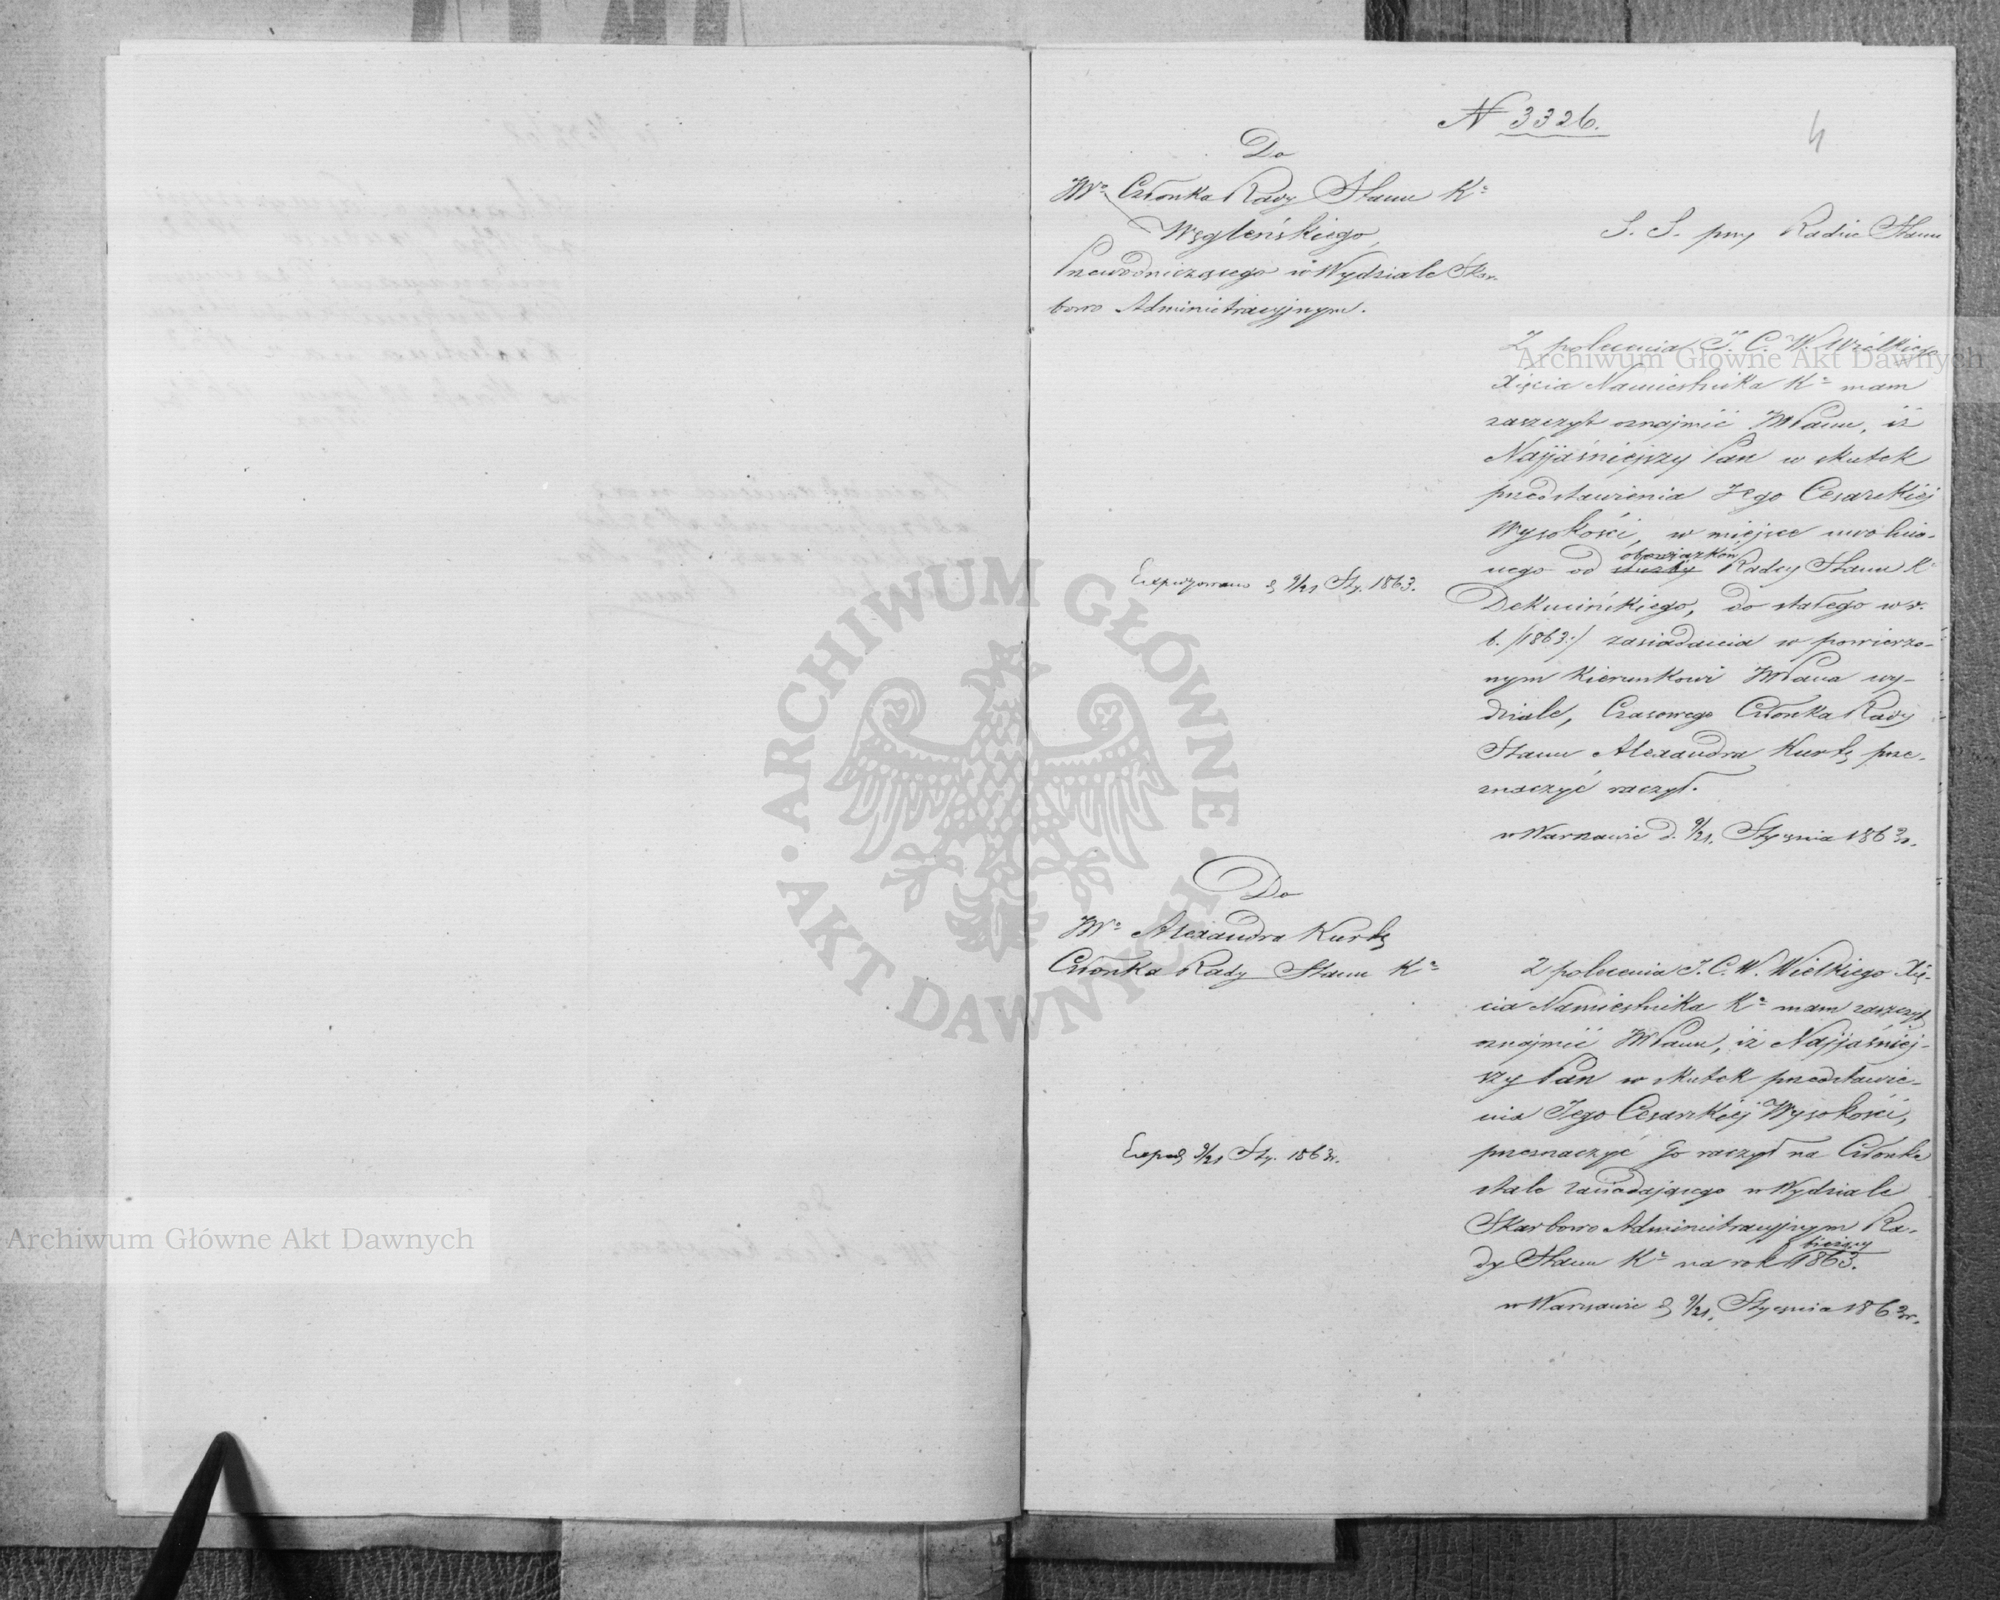 N 3326.
4
Do
JWo Członka Rady Stanu Ka
Węgleńskiego,
Przewodniczącego w Wydziale Skar-
bowo Administracyjnym.
S. S. przy Radzie Stanu
Z polecenia J. C. W. Wielkiego
Xięcia Namiestnika Ka mam
zaszczyt oznajmić JWPanu, iż
Najjaśniejszy Pan w skutek
przedstawienia Jego Cesarskiej
Wysokości, w miejsce uwolnio-
nego od służby obowiązków Radcy Stanu Ka
Dekucińskiego, do stałego w r.
b. /1863:/ zasiadania w powierzo-
nym kierunkowi JWPana wy-
dziale, Czasowego Członka Rady
Stanu Alexandra Kurtz prze-
znaczyć raczył.
w Warszawie d. 9/21. Stycznia 1863 r.
Expedyowano d 9/21 Sty. 1863.
Do
JWo Alexandra Kurtz
Członka Rady Stanu Ka
Z polecenia J. C. W. Wielkiego Xię-
cia Namiestnika Ka mam zaszczyt
oznajmić JWPanu, iż Najjaśniej-
szy Pan w skutek przedstawie-
nia Jego Cesarskiej Wysokości,
przeznaczyć Go raczył na Członka
stale zasiadającego w Wydziale
Skarbowo Administracyjnym Ra-
dy Stanu Ka na rok bieżący 1863.
w Warszawie d 9/21. Stycznia 1863 r.
Exped 9/21 Sty. 1863 r.
Archiwum Główne Akt Dawnych
Archiwum Główne Akt Dawnych
ARCHIWUM GŁÓWNE AKT DAWNYCH